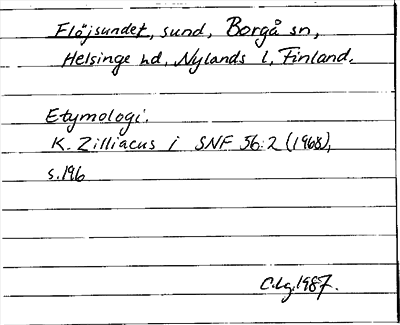 Flöjsundet, sund, Borgå sn,
Helsinge hd, Nylands l, Finland.
Etymologi.
K. Zilliacus i SNF 56:2 (1968),
s.196
C.Lg.1987.